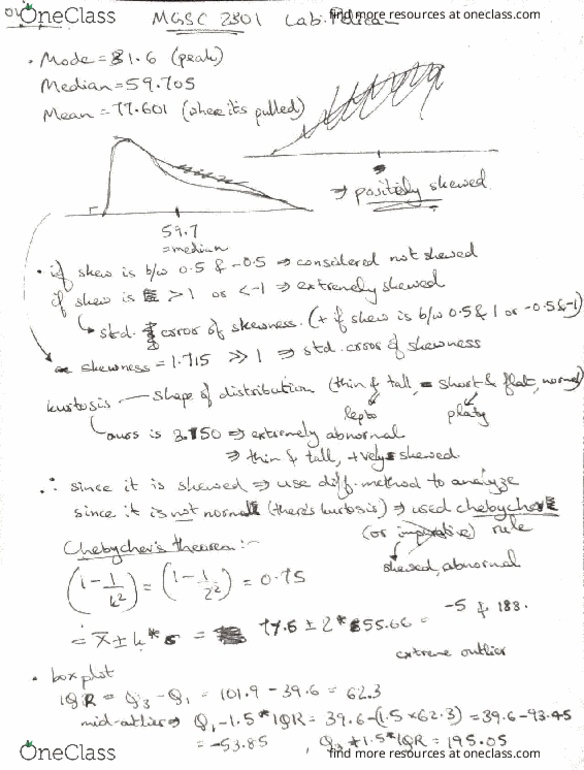 OneClass
MGSC 2801 Lab
find more resources at oneclass.com
• Mode = 31.6 (peak)
Median = 59.705
Mean = 77.601 (where its pulled)
⇒ positively skewed
59.7
= median
• if skew is b/w 0.5 & -0.5 ⇒ considered not skewed
if skew is > 1 or < -1 ⇒ extremely skewed
↳ std. error of skewness. (+ if skew is b/w 0.5 & 1 or -0.5 & -1)
skewness = 1.715 >> 1 ⇒ std. error of skewness
kurtosis — shape of distribution (thin & tall, short & flat, normal)
lepto platy
ours is 3.750 ⇒ extremely abnormal
⇒ thin & tall, +vely skewed.
∴ since it is skewed ⇒ use diff. method to analyze
since it is not normal (there's kurtosis) ⇒ used chebychev
(or) rule
skewed, abnormal
Chebychev's theorem :-
(1 - 1/k²) = (1 - 1/2²) = 0.75
= x̄ ± k*s = 77.6 ± 2*55.66 = -5 & 188.
extreme outlier
• box plot
IQR = Q3 - Q1 = 101.9 - 39.6 = 62.3
mid-outlier ⇒ Q1 - 1.5*IQR = 39.6 - (1.5 x 62.3) = 39.6 - 93.45
= -53.85 , Q3 + 1.5*IQR = 195.05
OneClass
find more resources at oneclass.com